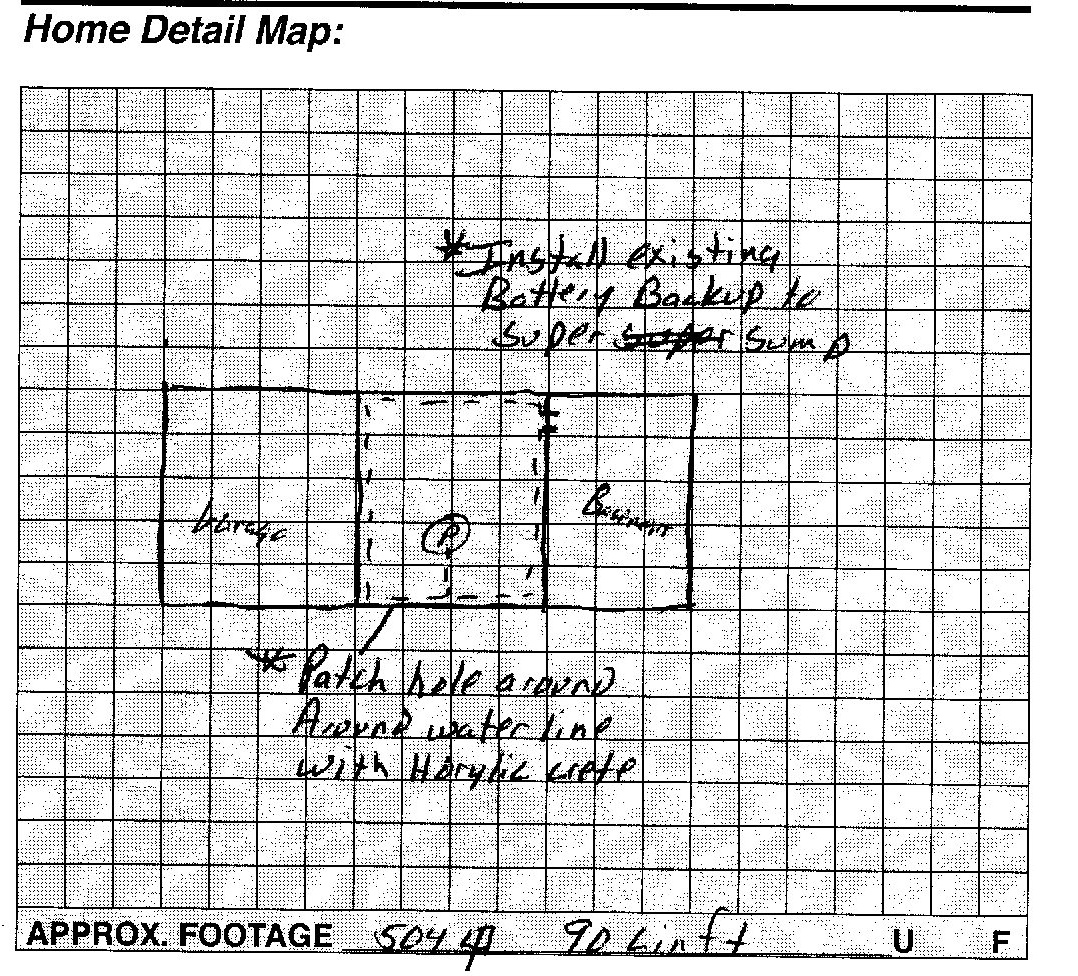 Home Detail Map:
* Install existing
Battery Backup to
super super sump
Garage
P
Basement
* Patch hole around
Around water line
with Hcrylic crete
APPROX. FOOTAGE 504 90 Lin ft U F